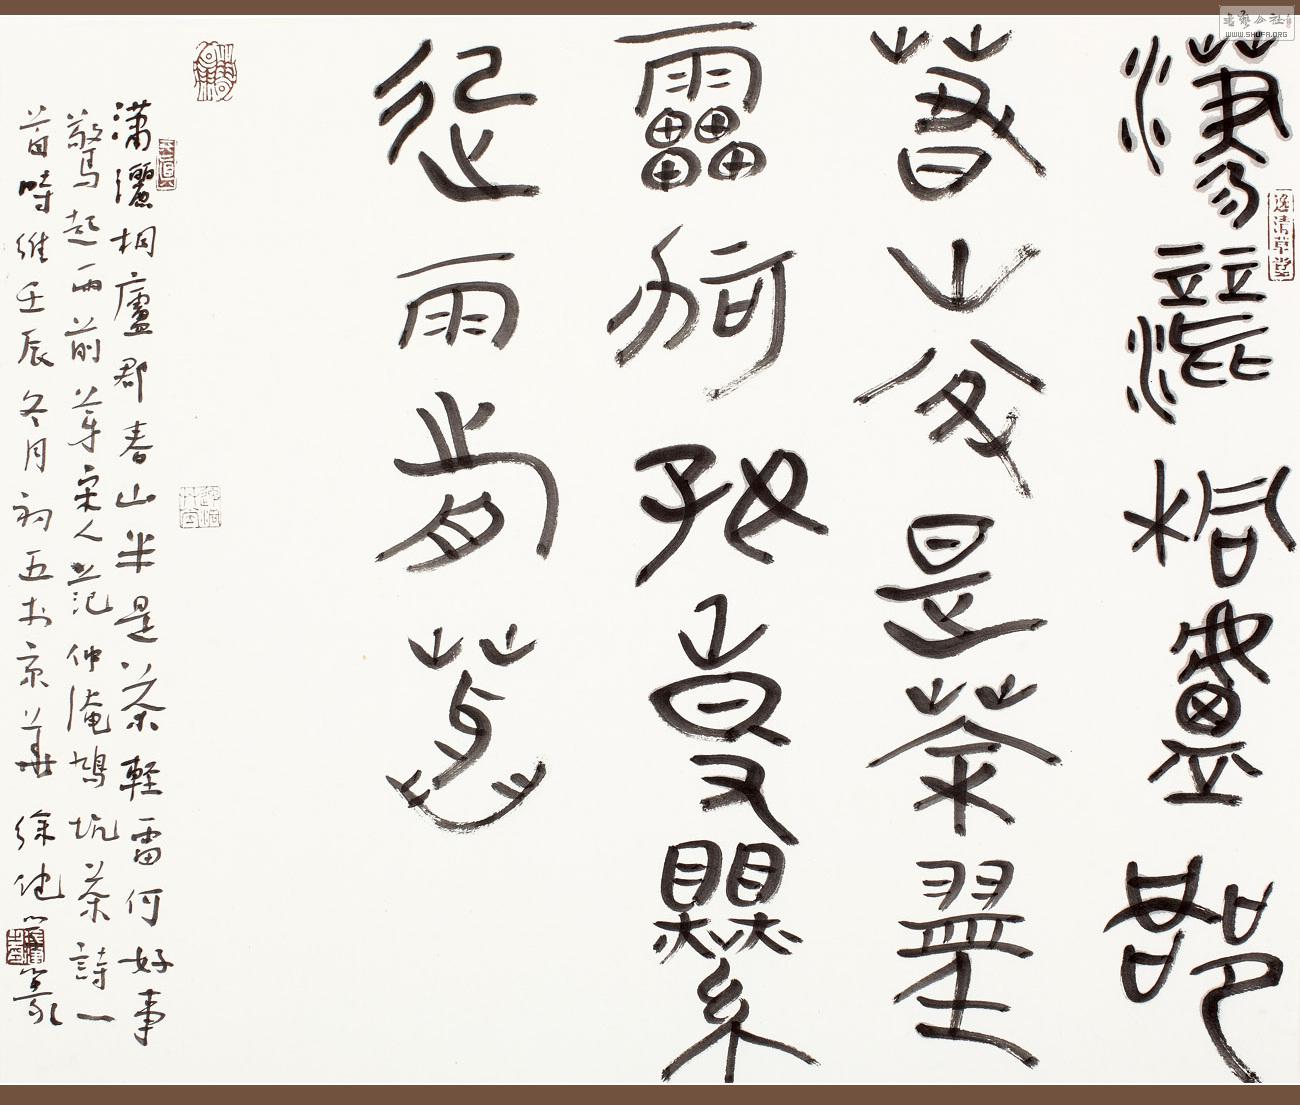 瀟灑桐廬郡
春山半是茶輕
雷何好事驚
起雨前芽
瀟灑桐廬郡春山半是茶輕雷何好事
驚起雨前芽宋人范仲淹鳩坑茶詩一
首時維壬辰冬月初五於京華 徐 篆
逸清草堂
书艺公社
WWW.SHUFA.ORG